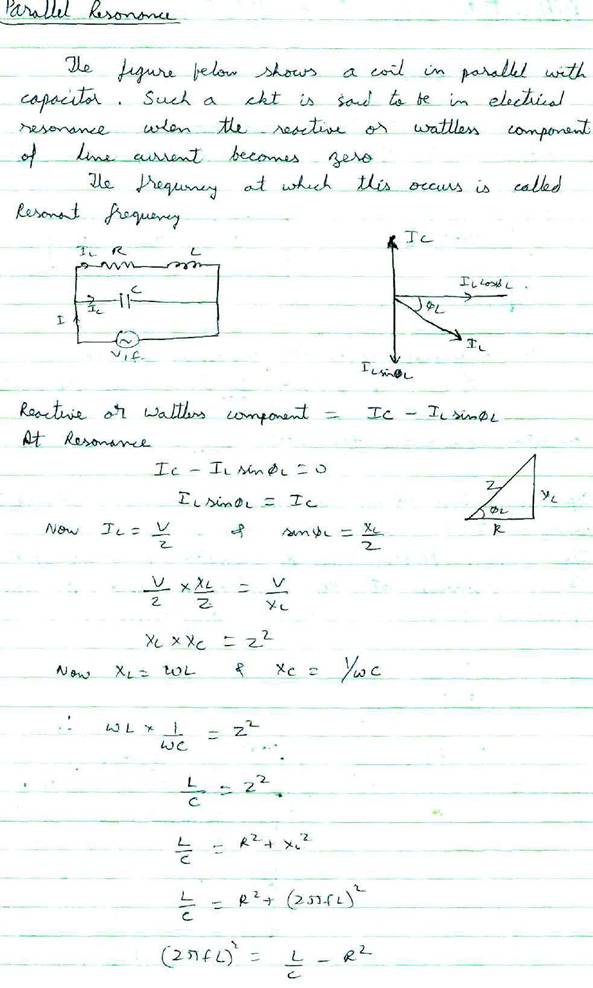 Parallel Resonance
The figure below shows a coil in parallel with
capacitor. Such a ckt is said to be in electrical
resonance when the reactive or wattless component
of line current becomes zero
The frequency at which this occurs is called
Resonant frequency
IL R L
C
IC
I
V, f.
IC
IL cosϕL
ϕL
IL
IL sinϕL
Reactive or wattless component = IC - IL sinϕL
At Resonance
IC - IL sinϕL = 0
IL sinϕL = IC
Z XL
ϕL
R
Now IL = V/Z & sinϕL = XL/Z
V/Z × XL/Z = V/XL
XL × XC = Z²
Now XL = ωL & XC = 1/ωC
∴ ωL × 1/ωC = Z²
L/C = Z².
L/C = R² + XL²
L/C = R² + (2πfL)²
(2πfL)² = L/C - R²